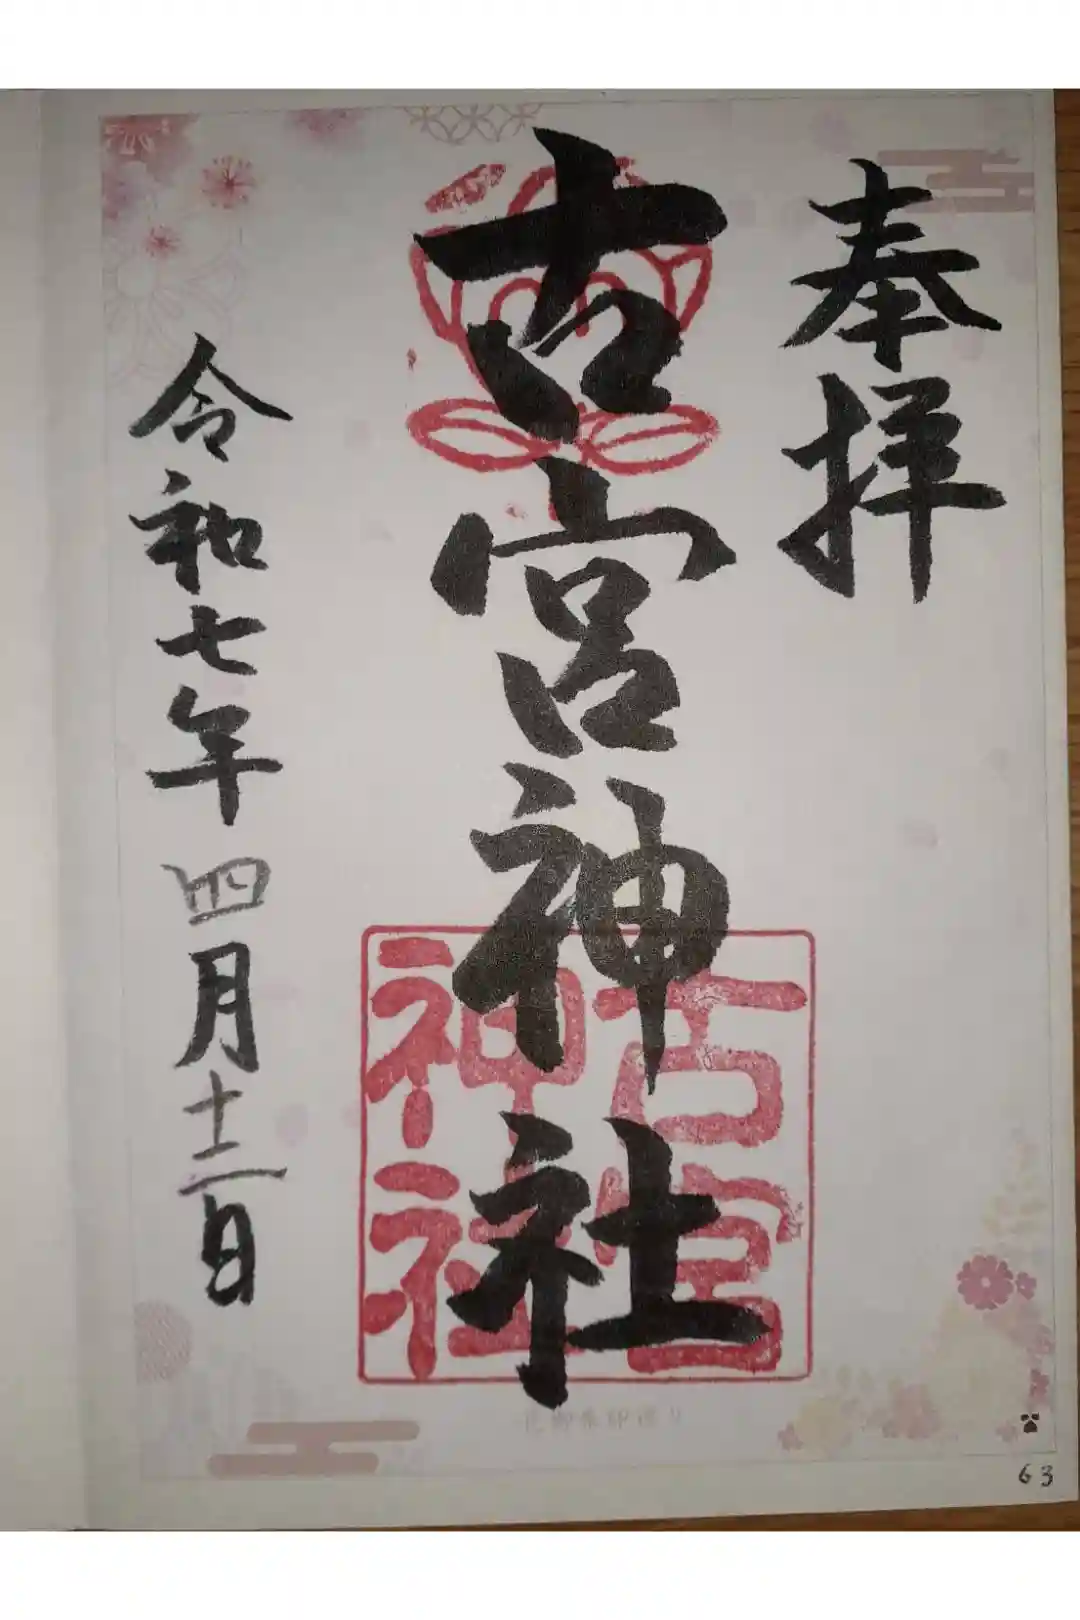 奉拝
古宮神社
令和七年四月十二日
古宮
神社
63